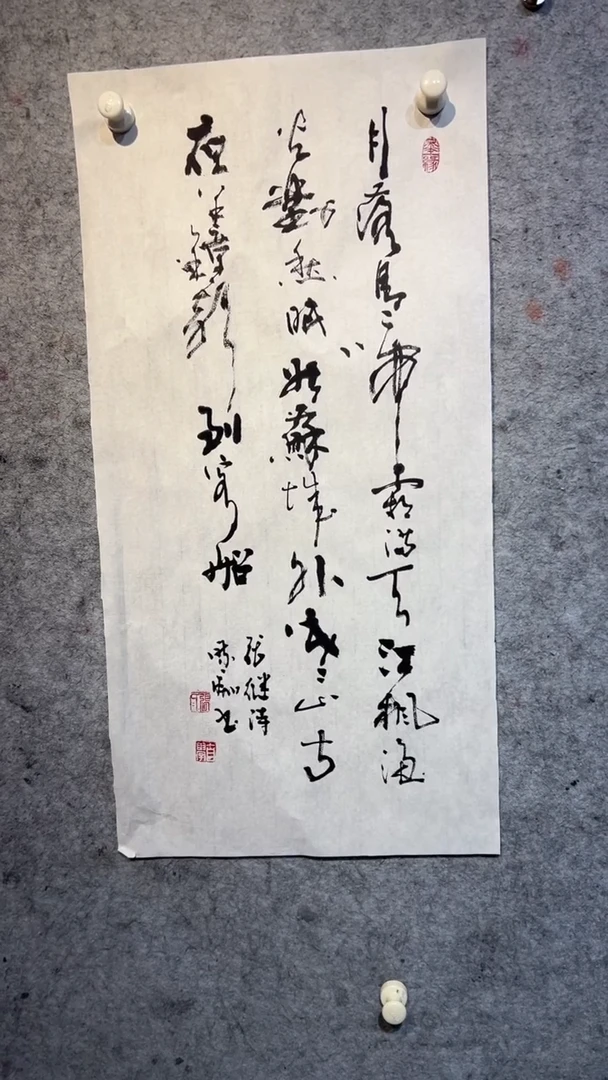 月落烏啼霜滿天江楓漁
火對愁眠姑蘇城外寒山寺
夜半鐘聲到客船
張繼詩
書